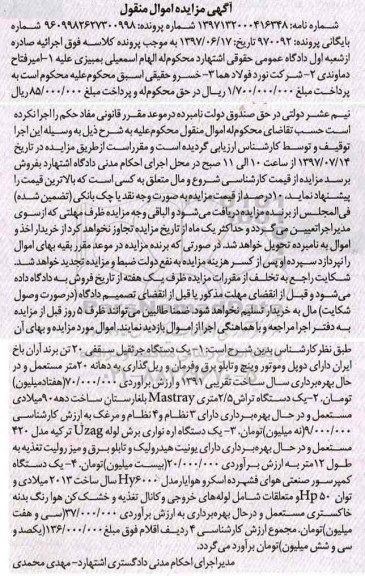 آگهی مزایده اموال منقول
شماره نامه: ۱۳۹۷۱۳۲۰۰۰۴۱۶۳۴۸ شماره پرونده: ۹۶۰۹۹۸۲۶۲۷۳۰۰۹۹۸ شماره
بایگانی پرونده: ۹۷۰۰۹۲ تاریخ: ۱۳۹۷/۰۶/۱۷ به موجب پرونده کلاسه فوق اجرائیه صادره
از شعبه اول دادگاه عمومی حقوقی اشتهارد محکوم‌له الهام اسمعیلی بمبیزی علیه ۱-امیرفتاح
دماوندی ۲-شرکت نورد فولاد هما ۳-خسرو حقیقی اسبق محکوم‌علیه محکوم است به
پرداخت مبلغ ۱/۷۰۰/۰۰۰/۰۰۰ ریال در حق محکوم‌له و پرداخت مبلغ ۸۵/۰۰۰/۰۰۰ریال
نیم عشر دولتی در حق صندوق دولت نامبرده در موعد مقرر قانونی مفاد حکم را اجرا نکرده
است حسب تقاضای محکوم‌له اموال منقول محکوم‌علیه به شرح ذیل به وسیله این اجرا
توقیف و توسط کارشناس ارزیابی گردیده است و مقرر است از طریق مزایده در تاریخ
۱۳۹۷/۰۷/۱۴ از ساعت ۱۰ الی ۱۱ صبح در محل اجرای احکام مدنی دادگاه اشتهارد بفروش
برسد مزایده از قیمت کارشناسی شروع و مال متعلق به کسی است که بالاترین قیمت را
پیشنهاد نماید. ۱۰درصد از قیمت مزایده به صورت وجه نقد یا چک بانکی (تضمین شده)
فی‌المجلس از برنده مزایده دریافت می‌شود و الباقی وجه مزایده ظرف مهلتی که از سوی
مدیر اجرا تعیین می‌گردد و حداکثر یک ماه از تاریخ مزایده تجاوز نخواهد کرد از خریدار اخذ و
اموال به نامبرده تحویل خواهد شد. در صورتی که برنده مزایده در موعد مقرر بقیه بهای اموال
را نپردازد سپرده او پس از کسر هزینه مزایده به نفع دولت ضبط و مزایده تجدید خواهد شد.
شکایت راجع به تخلف از مقررات مزایده ظرف یک هفته از تاریخ فروش به دادگاه داده
می‌شود و قبل از انقضای مهلت مذکور یا قبل از انقضای تصمیم دادگاه (در صورت وصول
شکایت) مال به خریدار تسلیم نخواهد شد. ضمنا طالبین می‌توانند ظرف ۵ روز قبل از مزایده
به دفتر اجرا مراجعه و با هماهنگی اجرا از اموال بازدید نمایند. اموال مورد مزایده و بهای آن
طبق نظر کارشناس بدین شرح است: ۱-یک دستگاه جرثقیل سقفی ۲۰ تن برند آران باخ
ایران دارای دوپل و موتور وینچ و تابلو برق و فرمان و ریل گذاری به دهانه ۲۰متر مستعمل و در
حال بهره‌برداری سال ساخت تقریبی ۱۳۹۱ و ارزش برآوردی ۷۰/۰۰۰/۰۰۰(هفتادمیلیون)
تومان. ۲-یک دستگاه تراش۲/۵متری Mastray بلغارستان ساخت دهه ۹۰میلادی
مستعمل و در حال بهره‌برداری دارای ۳ نظام و ۴ نظام و مرغک به ارزش کارشناسی
۹/۰۰۰/۰۰۰(نه میلیون)تومان. ۳-یک دستگاه اره نواری برش لوله Uzag ترکیه مدل ۴۲۰
مستعمل و در حال بهره‌برداری دارای یونیت هیدرولیک و تابلو برق و میز رولیت تغذیه به
طول ۱۲متر به ارزش برآوردی ۲۰/۰۰۰/۰۰۰(بیست میلیون)تومان. ۴-یک دستگاه
کمپرسور صنعتی هوای فشرده اسکرو هوایار مدل Hy6000 سال ساخت ۲۰۱۳ میلادی و
توان Hp ۵۰ و متعلقات شامل لوله‌های خروجی و کانال تغذیه و خشک‌کن هوا رنگ بدنه
خاکستری مستعمل و در حال بهره‌برداری به ارزش برآوردی ۳۷/۰۰۰/۰۰۰(سی و هفت
میلیون)تومان. مجموع ارزش کارشناسی ۴ ردیف اقلام فوق مبلغ ۱۳۶/۰۰۰/۰۰۰(یکصد و
سی و شش میلیون)تومان برآورد می‌گردد.
مدیر اجرای احکام مدنی دادگستری اشتهارد-مهدی محمدی